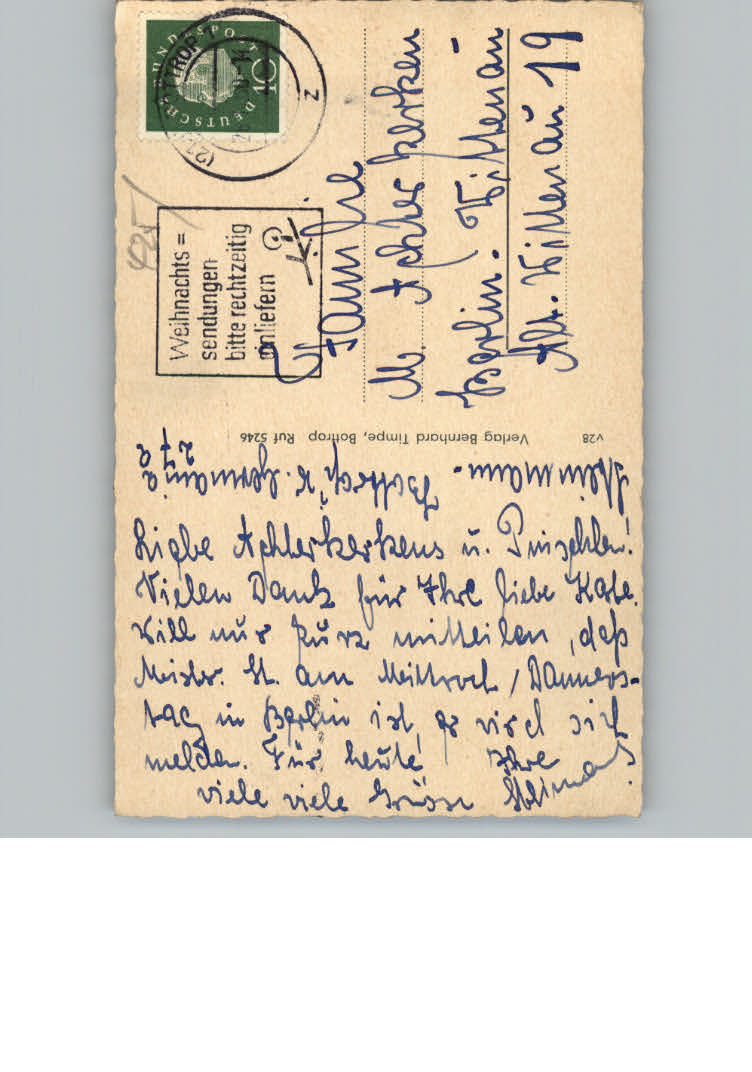 DEUTSCHE BUNDESPOST
10
BOTTROP 1
(21
z
425
Weihnachts=
sendungen
bitte rechtzeitig
einliefern
Familie
M. Achterkerken
Berlin-Wittenau
Alt-Wittenau 19
v28 Verlag Bernhard Timpe, Bottrop Ruf 5246
27a
Bottrop,
Liebe Achterkerkens u.
Vielen Dank für Ihre liebe Karte.
Will nur kurz mitteilen, daß
Meister St. am Mittwoch / Donners-
tag in Berlin ist, er wird sich
melden. Für heute Ihre
viele viele Grüsse